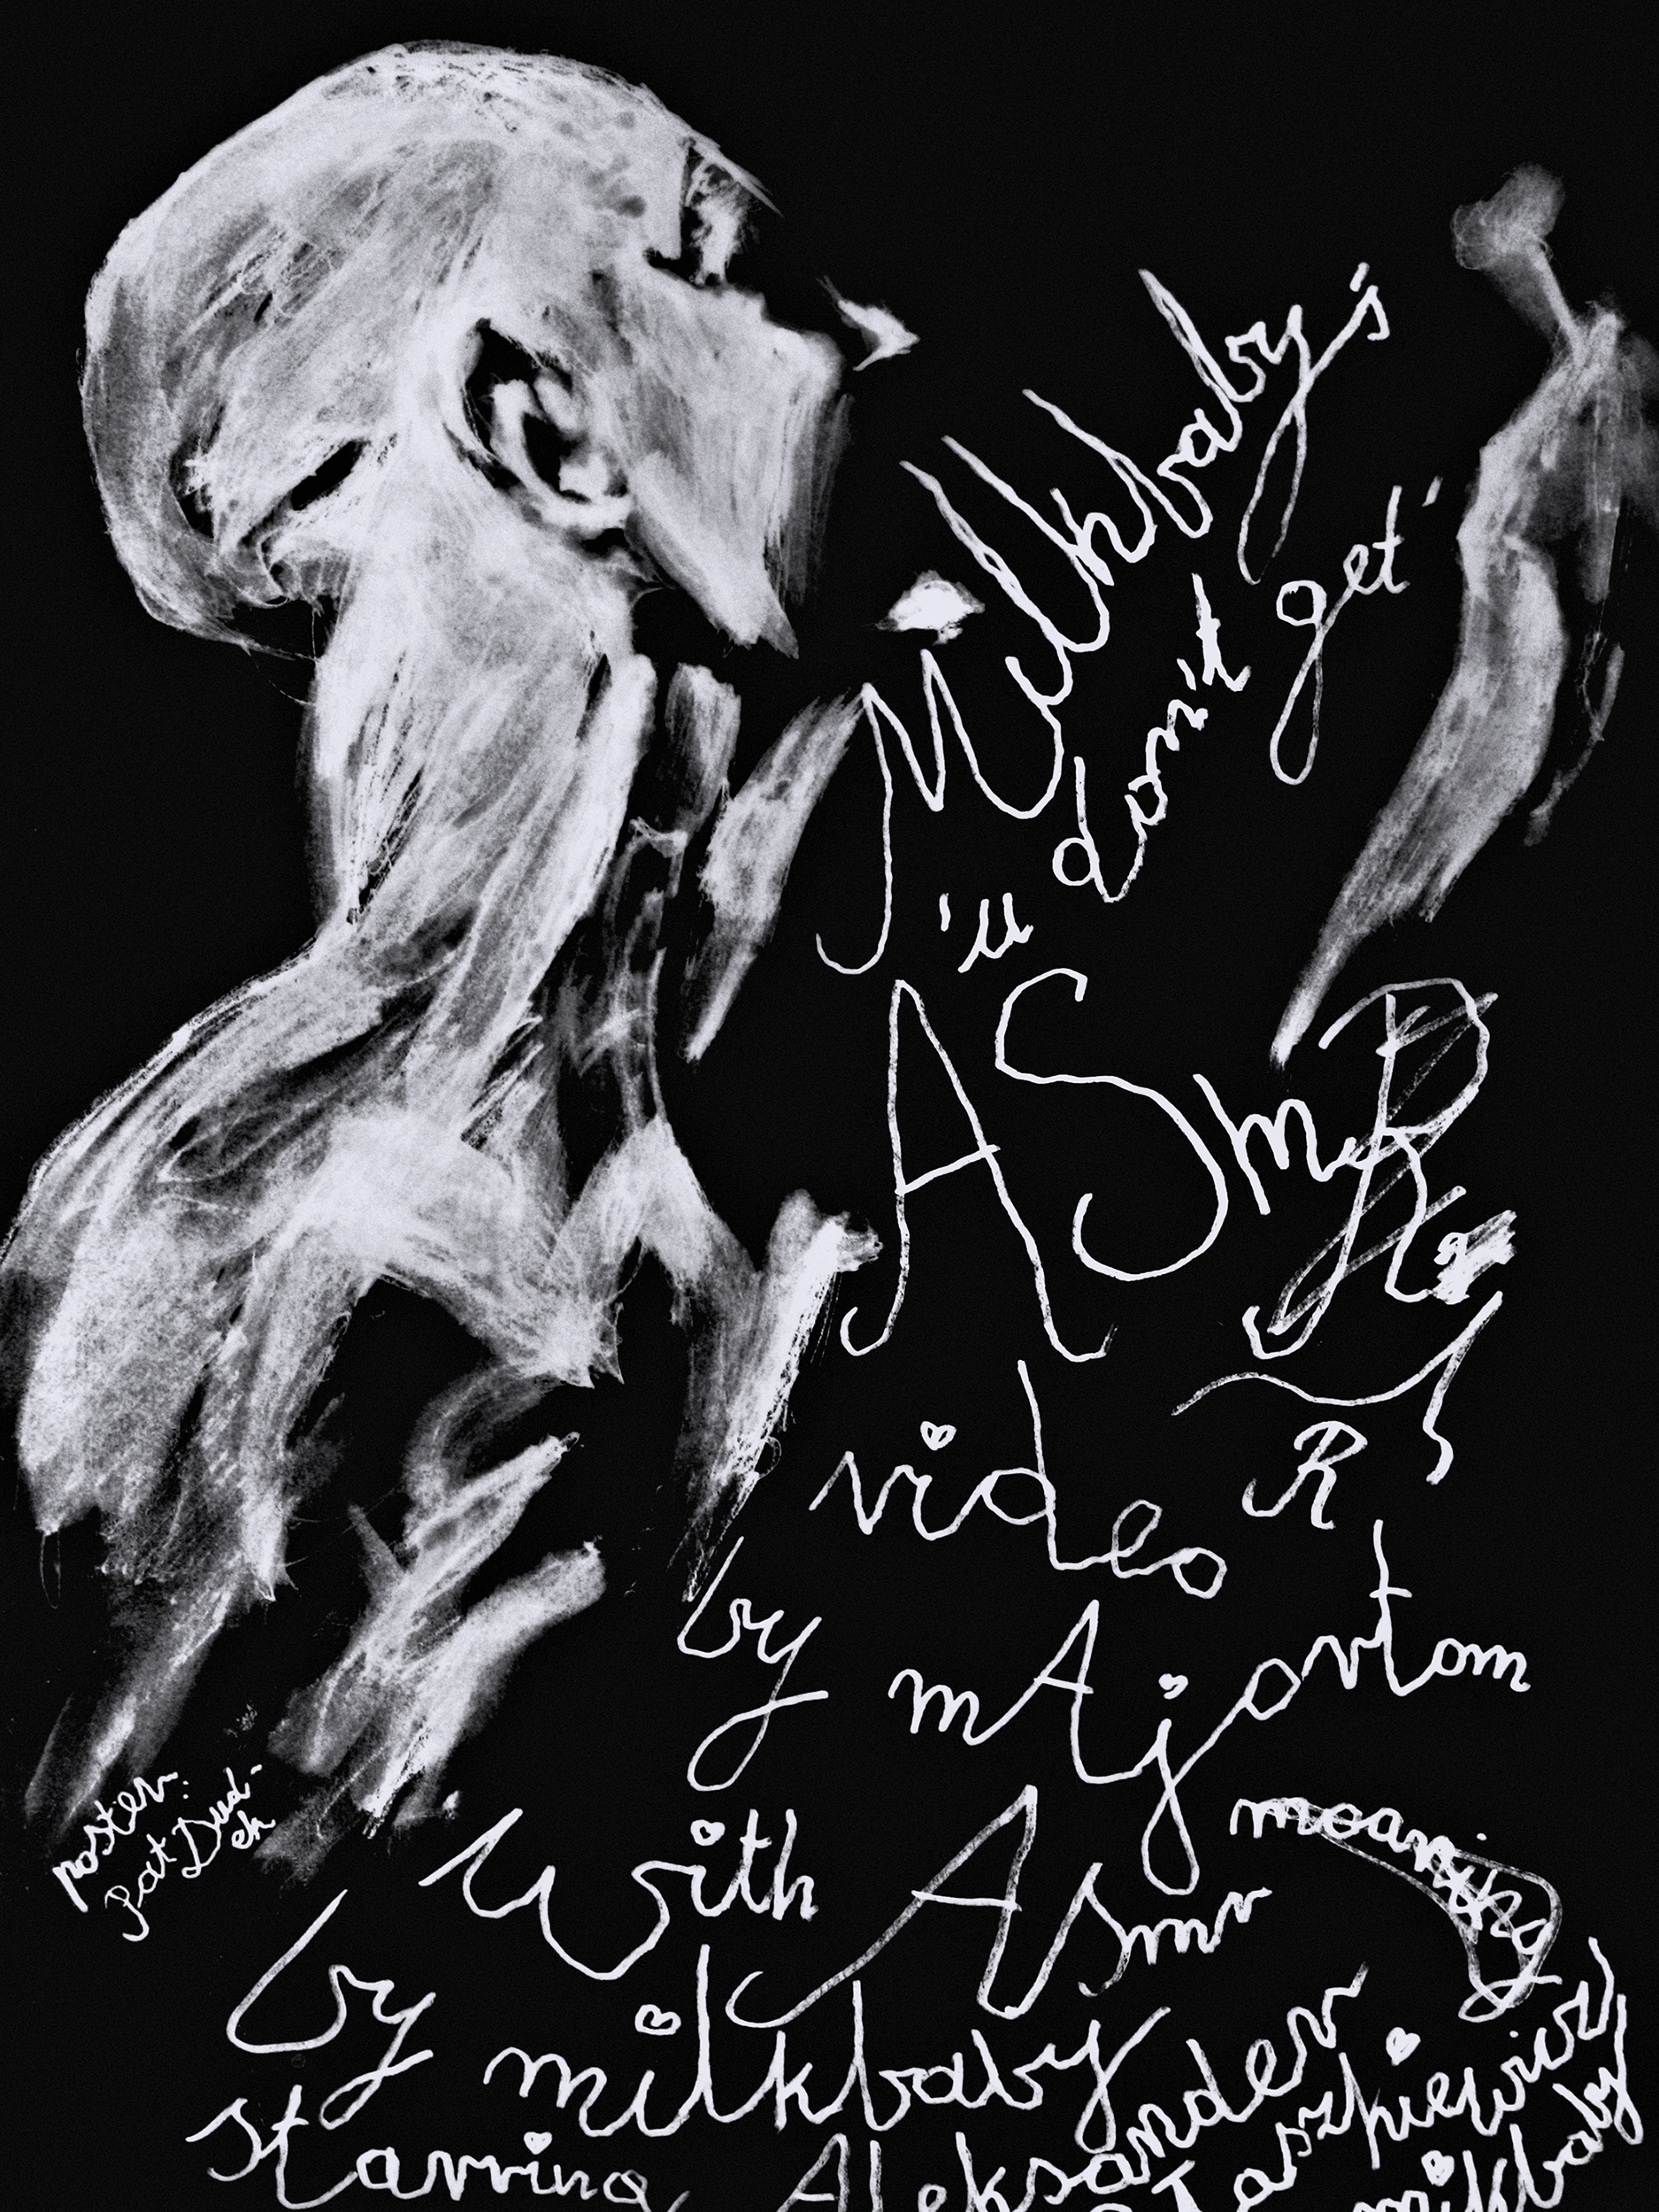 Milkbaby's
'u don't get'
ASmR
R
video
by mAjortom
with Asmr moaning
by milkbaby
Starring Aleksander
milkbaby
poster:
Pat Dud-
ek